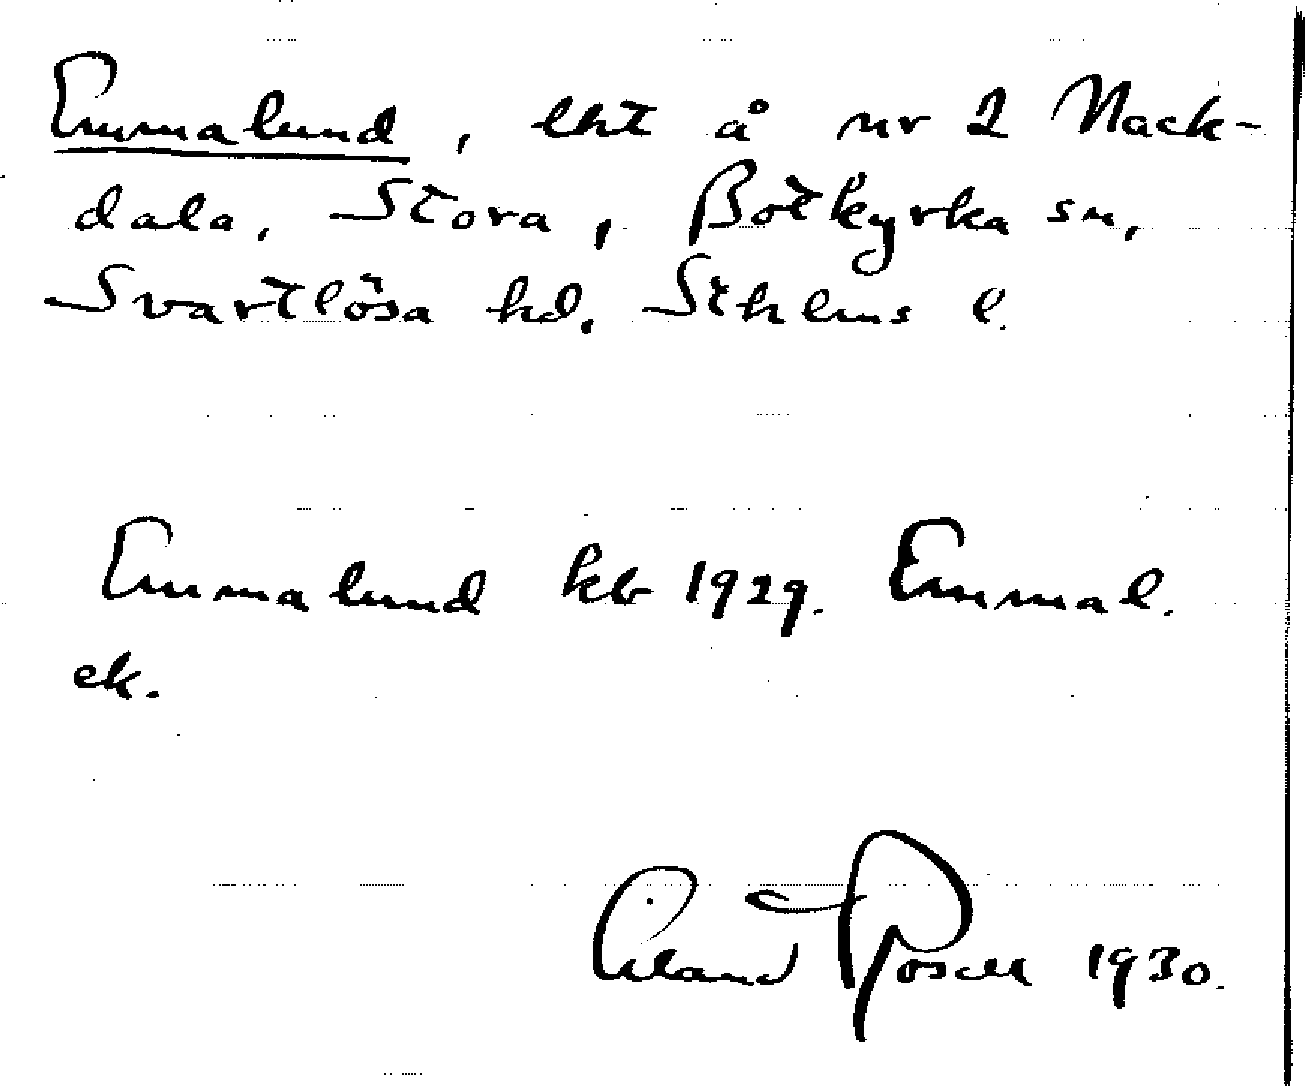 Emmalund, lht å nr 2 Nack-
dala, Stora, Botkyrka sn,
Svartlösa hd. Sthlms l.
Emmalund kb 1929. Emmal.
ek.
Erland Rosell 1930.